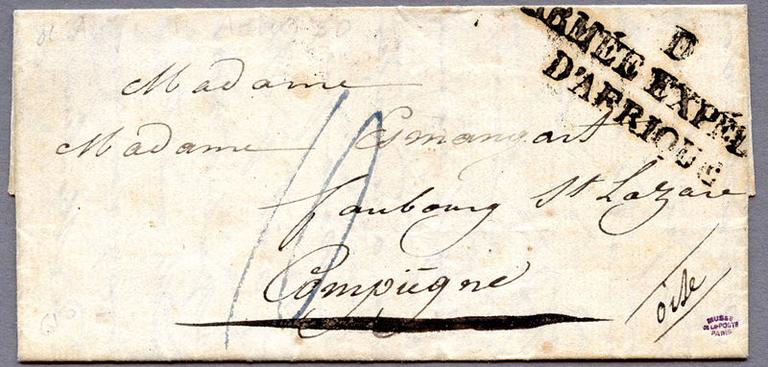 D
ARMÉE EXPÉD
D'AFRIQUE
Madame
Madame Esmangart
faubourg St Lazare
Compiègne
oise
10
MUSÉE
DE LA POSTE
PARIS